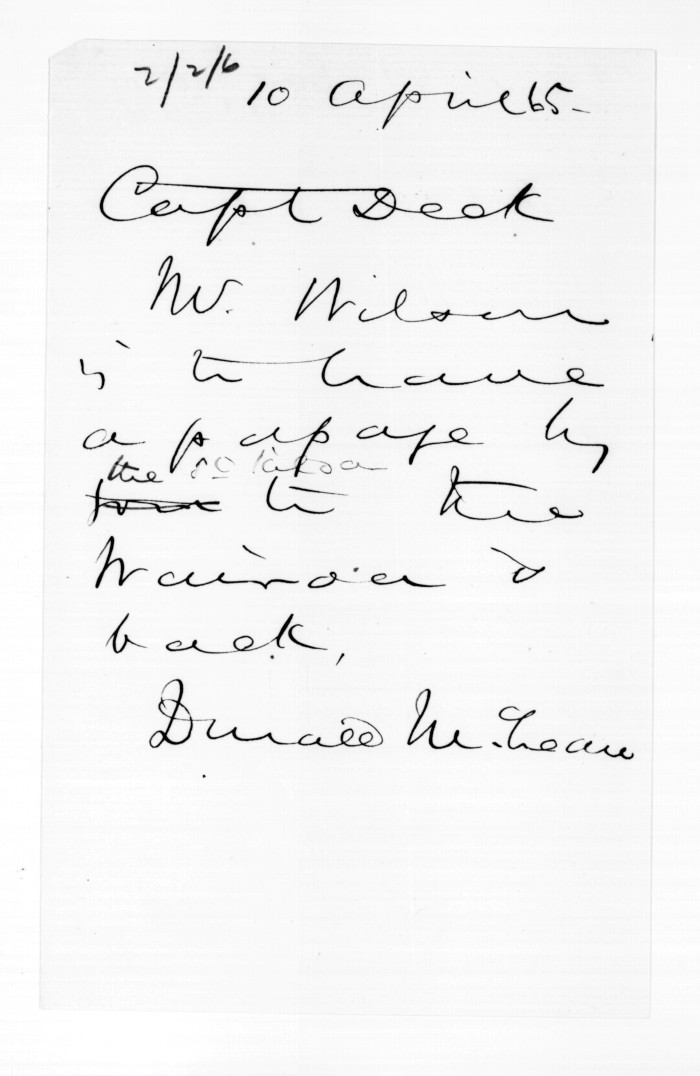 2/2/6 10 April 65-
Capt Deck
Mr. Wilson
is to have
a passage by
the St Kilda
to the
Wairoa &
back,
Donald McLean